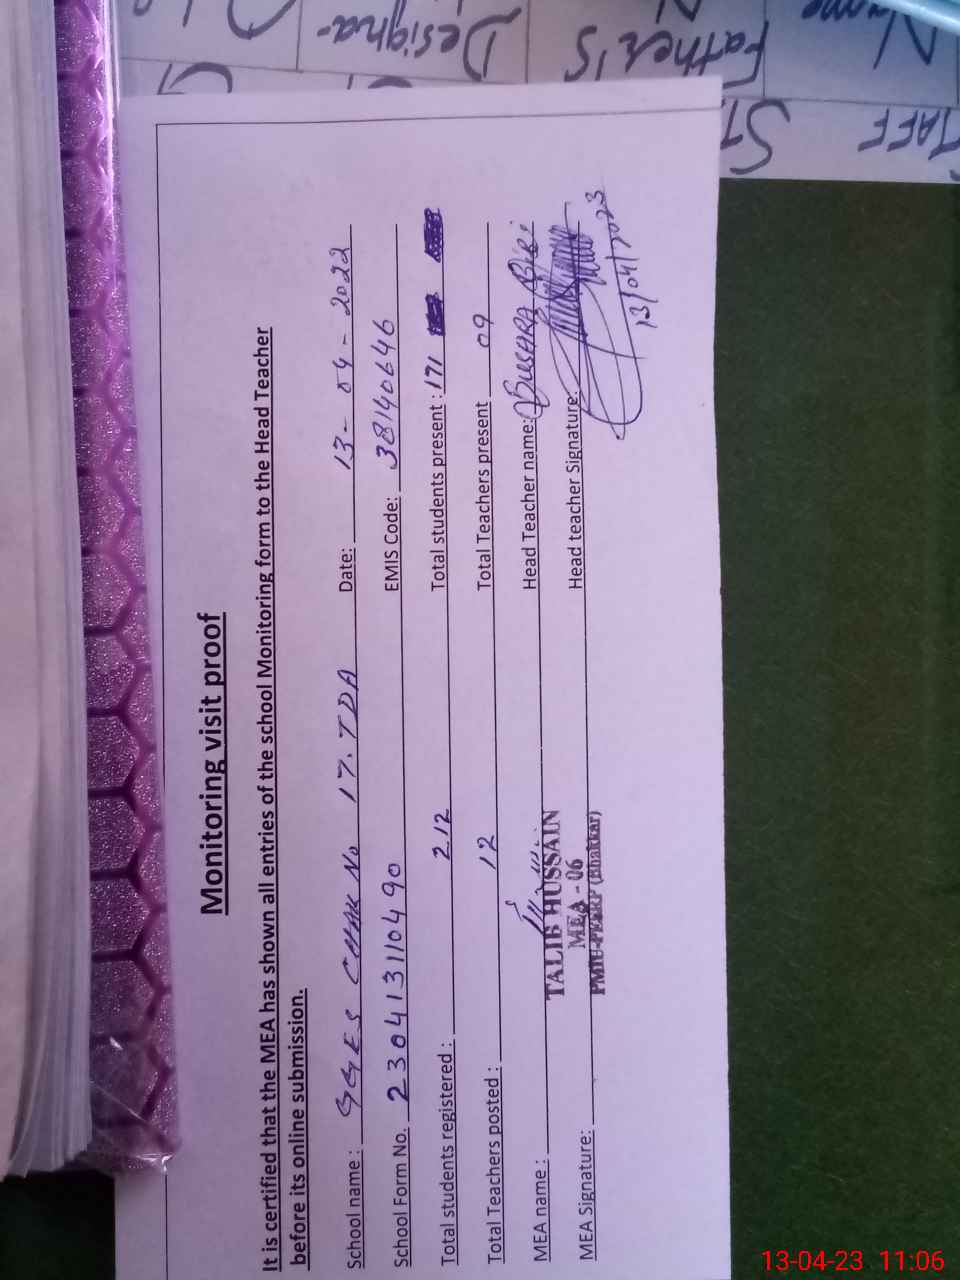 Monitoring visit proof
It is certified that the MEA has shown all entries of the school Monitoring form to the Head Teacher
before its online submission.
School name : GGES CHAK No 17.TDA Date: 13-04-2022
School Form No. 230413110490 EMIS Code: 38140646
Total students registered : 212 Total students present : 171
Total Teachers posted : 12 Total Teachers present 09
MEA name : Head Teacher name: BUSARA BIBI
TALIB HUSSAIN
MEA - 06
PMIU-PESRP (Bhakkar)
MEA Signature: Head teacher Signature:
13/04/2023
STAFF
Name
Father's
Designa-
13-04-23 11:06